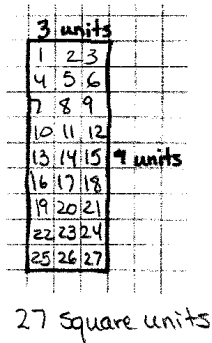 3 units
1 2 3
4 5 6
7 8 9
10 11 12
13 14 15 9 units
16 17 18
19 20 21
22 23 24
25 26 27
27 square units